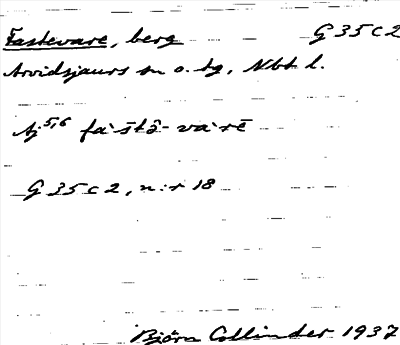 Fastevare, berg G 35 c 2
Arvidsjaurs sn o. tg, Nbt. l.
Aj 5,6 fa·stō- va·rē
G 35 c 2, n:r 18
Björn Collinder 1937